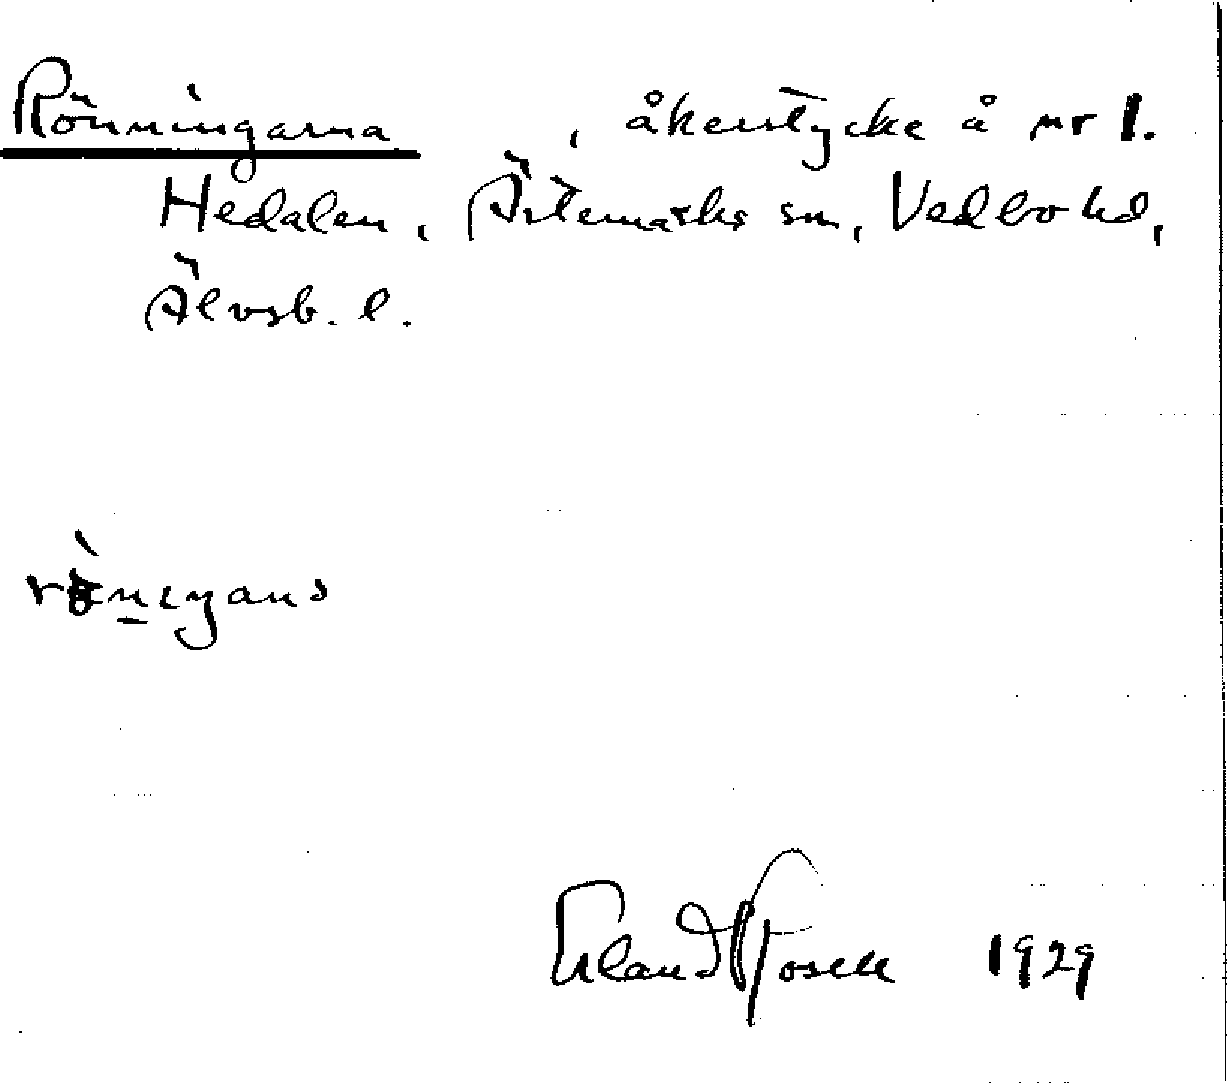 Rönningarna, åkerstycke å nr 1.
Hedalen, Ärtemarks sn, Vedbo hd,
Älvsb. l.
Erland Rosell 1929